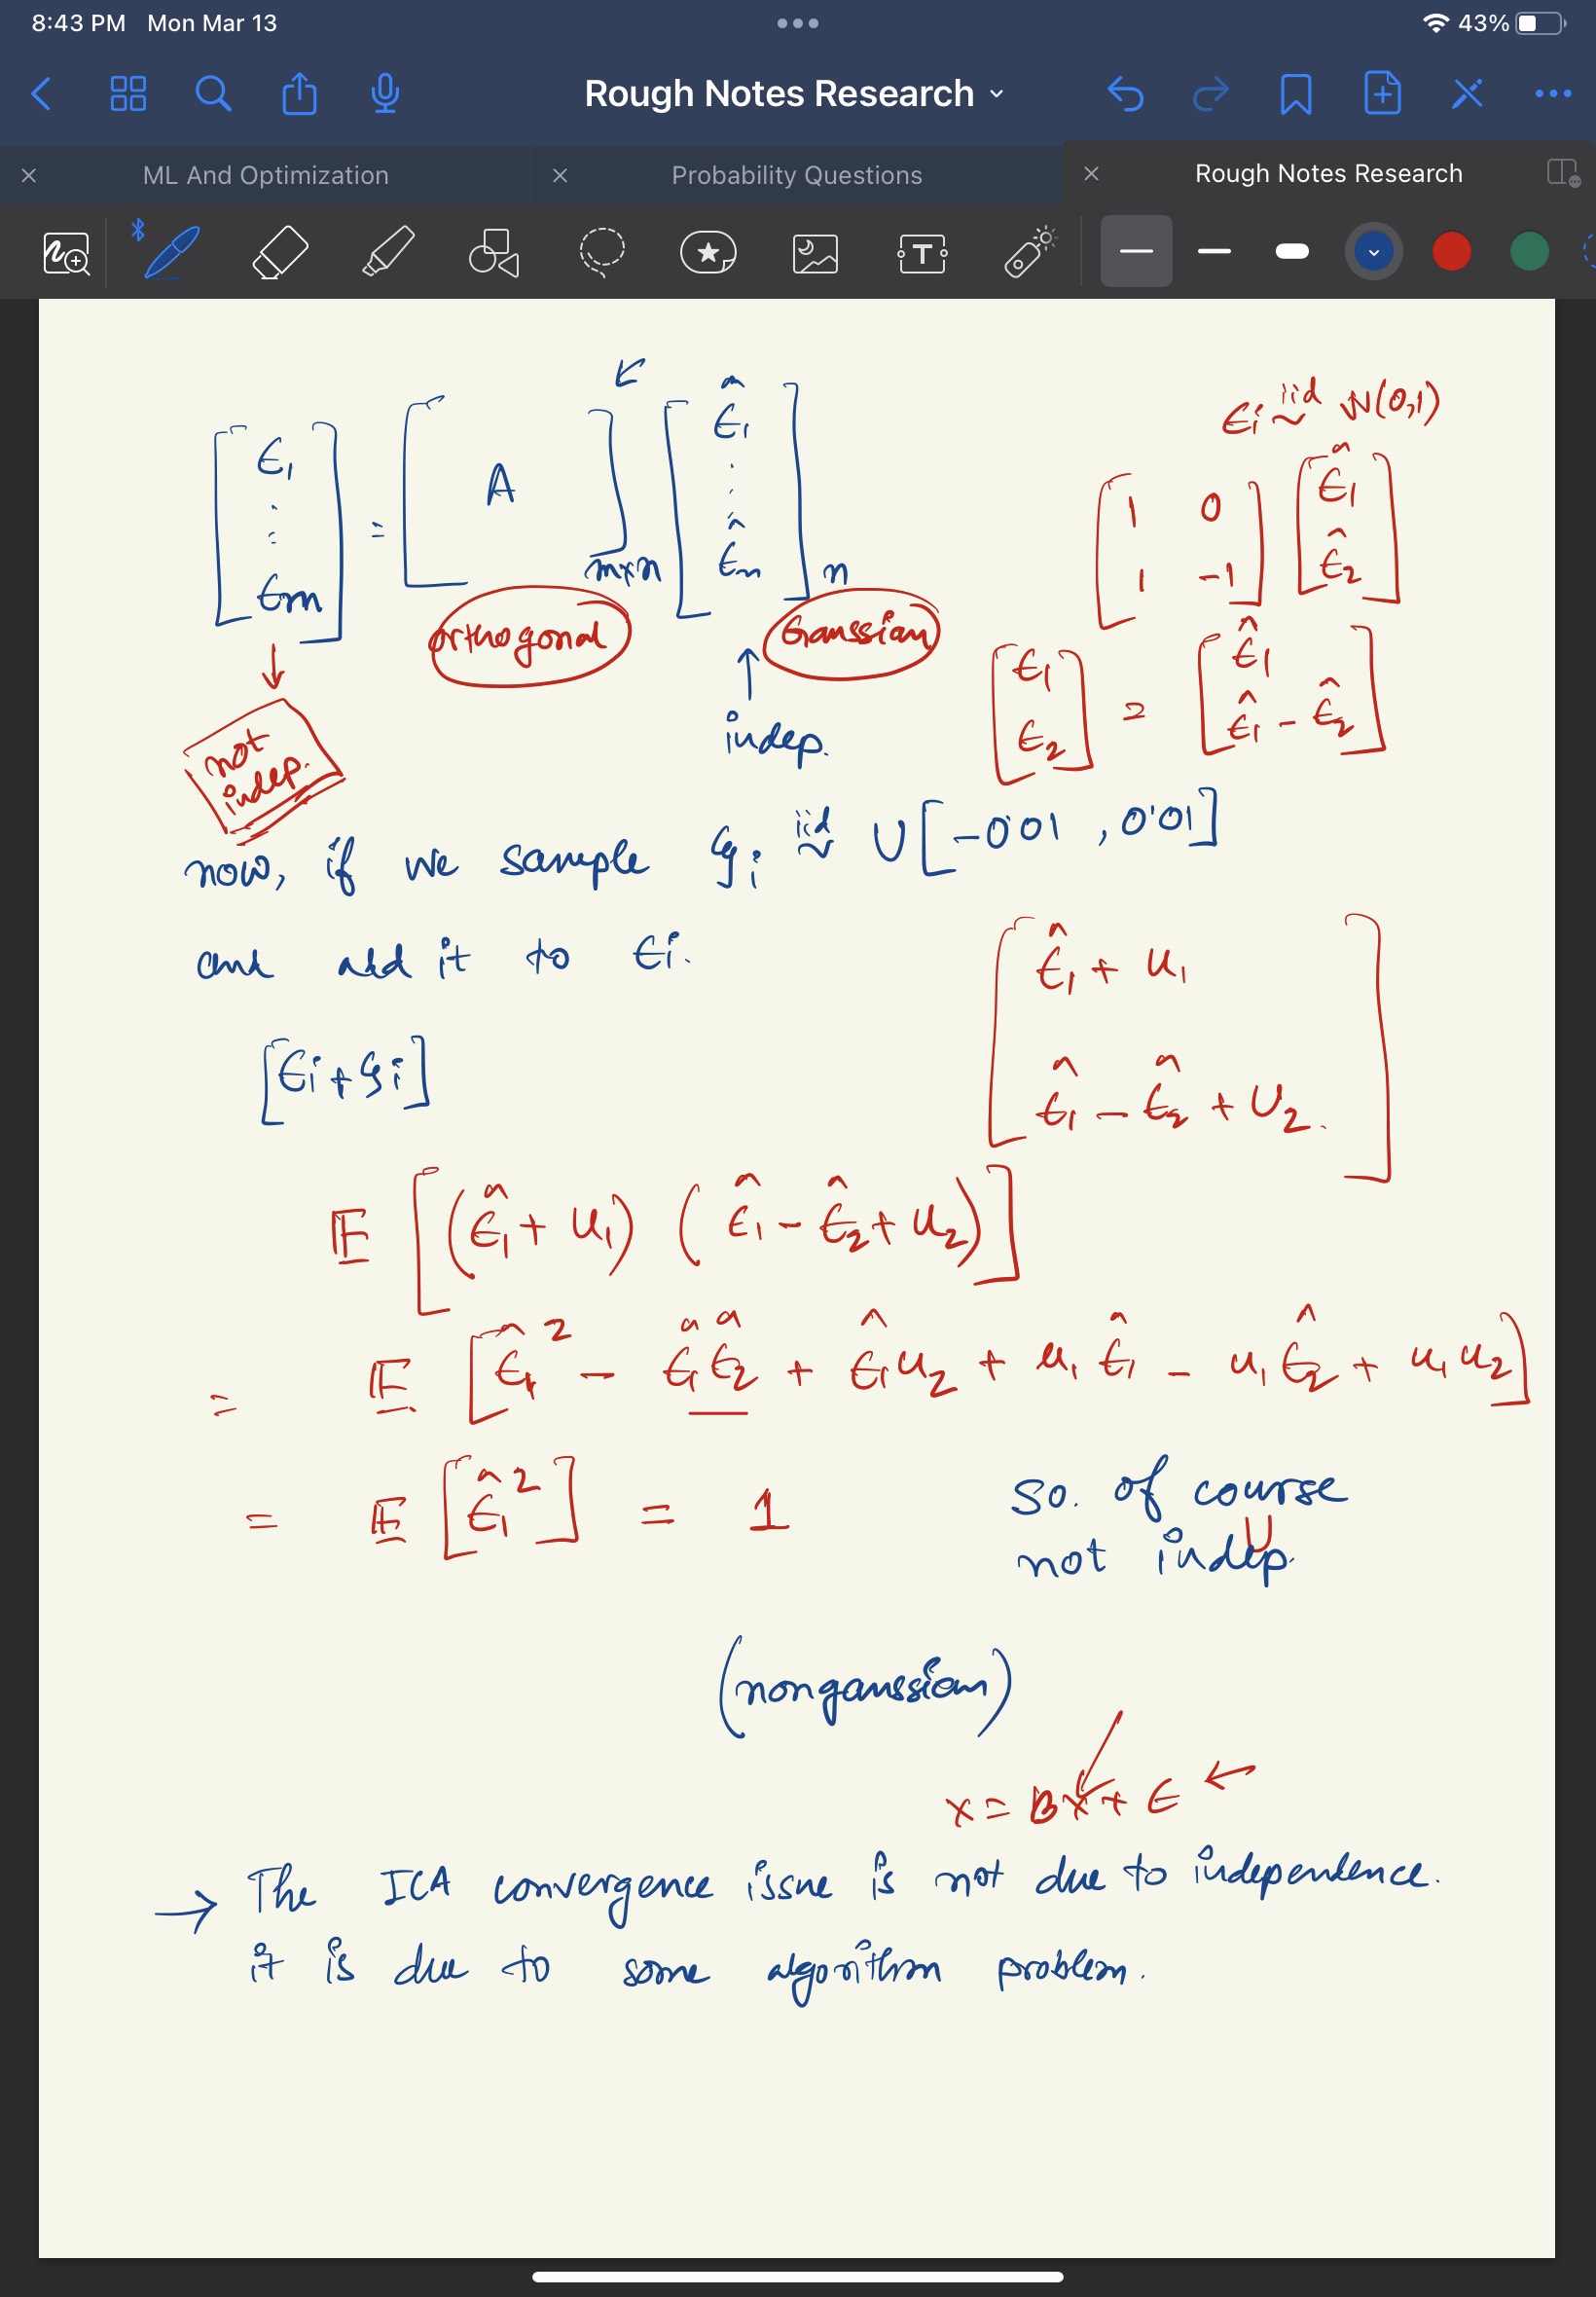 8:43 PM Mon Mar 13
43%
Rough Notes Research
ML And Optimization
Probability Questions
Rough Notes Research
T
[ϵ₁ ⋮ ϵm] = [A]m×n [ϵ̂₁ ⋮ ϵ̂n] n
orthogonal
Gaussian
indep.
not
indep.
ϵi iid ~ N(0,1)
[1 0; 1 -1] [ϵ̂₁; ϵ̂₂]
[ϵ₁; ϵ₂] = [ϵ̂₁; ϵ̂₁ - ϵ̂₂]
now, if we sample ξi iid ~ U[-0·01, 0·01]
and add it to ϵi.
[ϵi + ξi]
[ϵ̂₁ + u₁
ϵ̂₁ - ϵ̂₂ + U₂.]
E[(ϵ̂₁ + u₁) (ϵ̂₁ - ϵ̂₂ + u₂)]
= E[ϵ̂₁² - ϵ̂₁ϵ̂₂ + ϵ̂₁u₂ + u₁ϵ̂₁ - u₁ϵ̂₂ + u₁u₂]
= E[ϵ̂₁²] = 1
so. of course
not indep.
(nongaussian)
x = Bx + ϵ ←
→ The ICA convergence issue is not due to independence.
it is due to some algorithm problem.